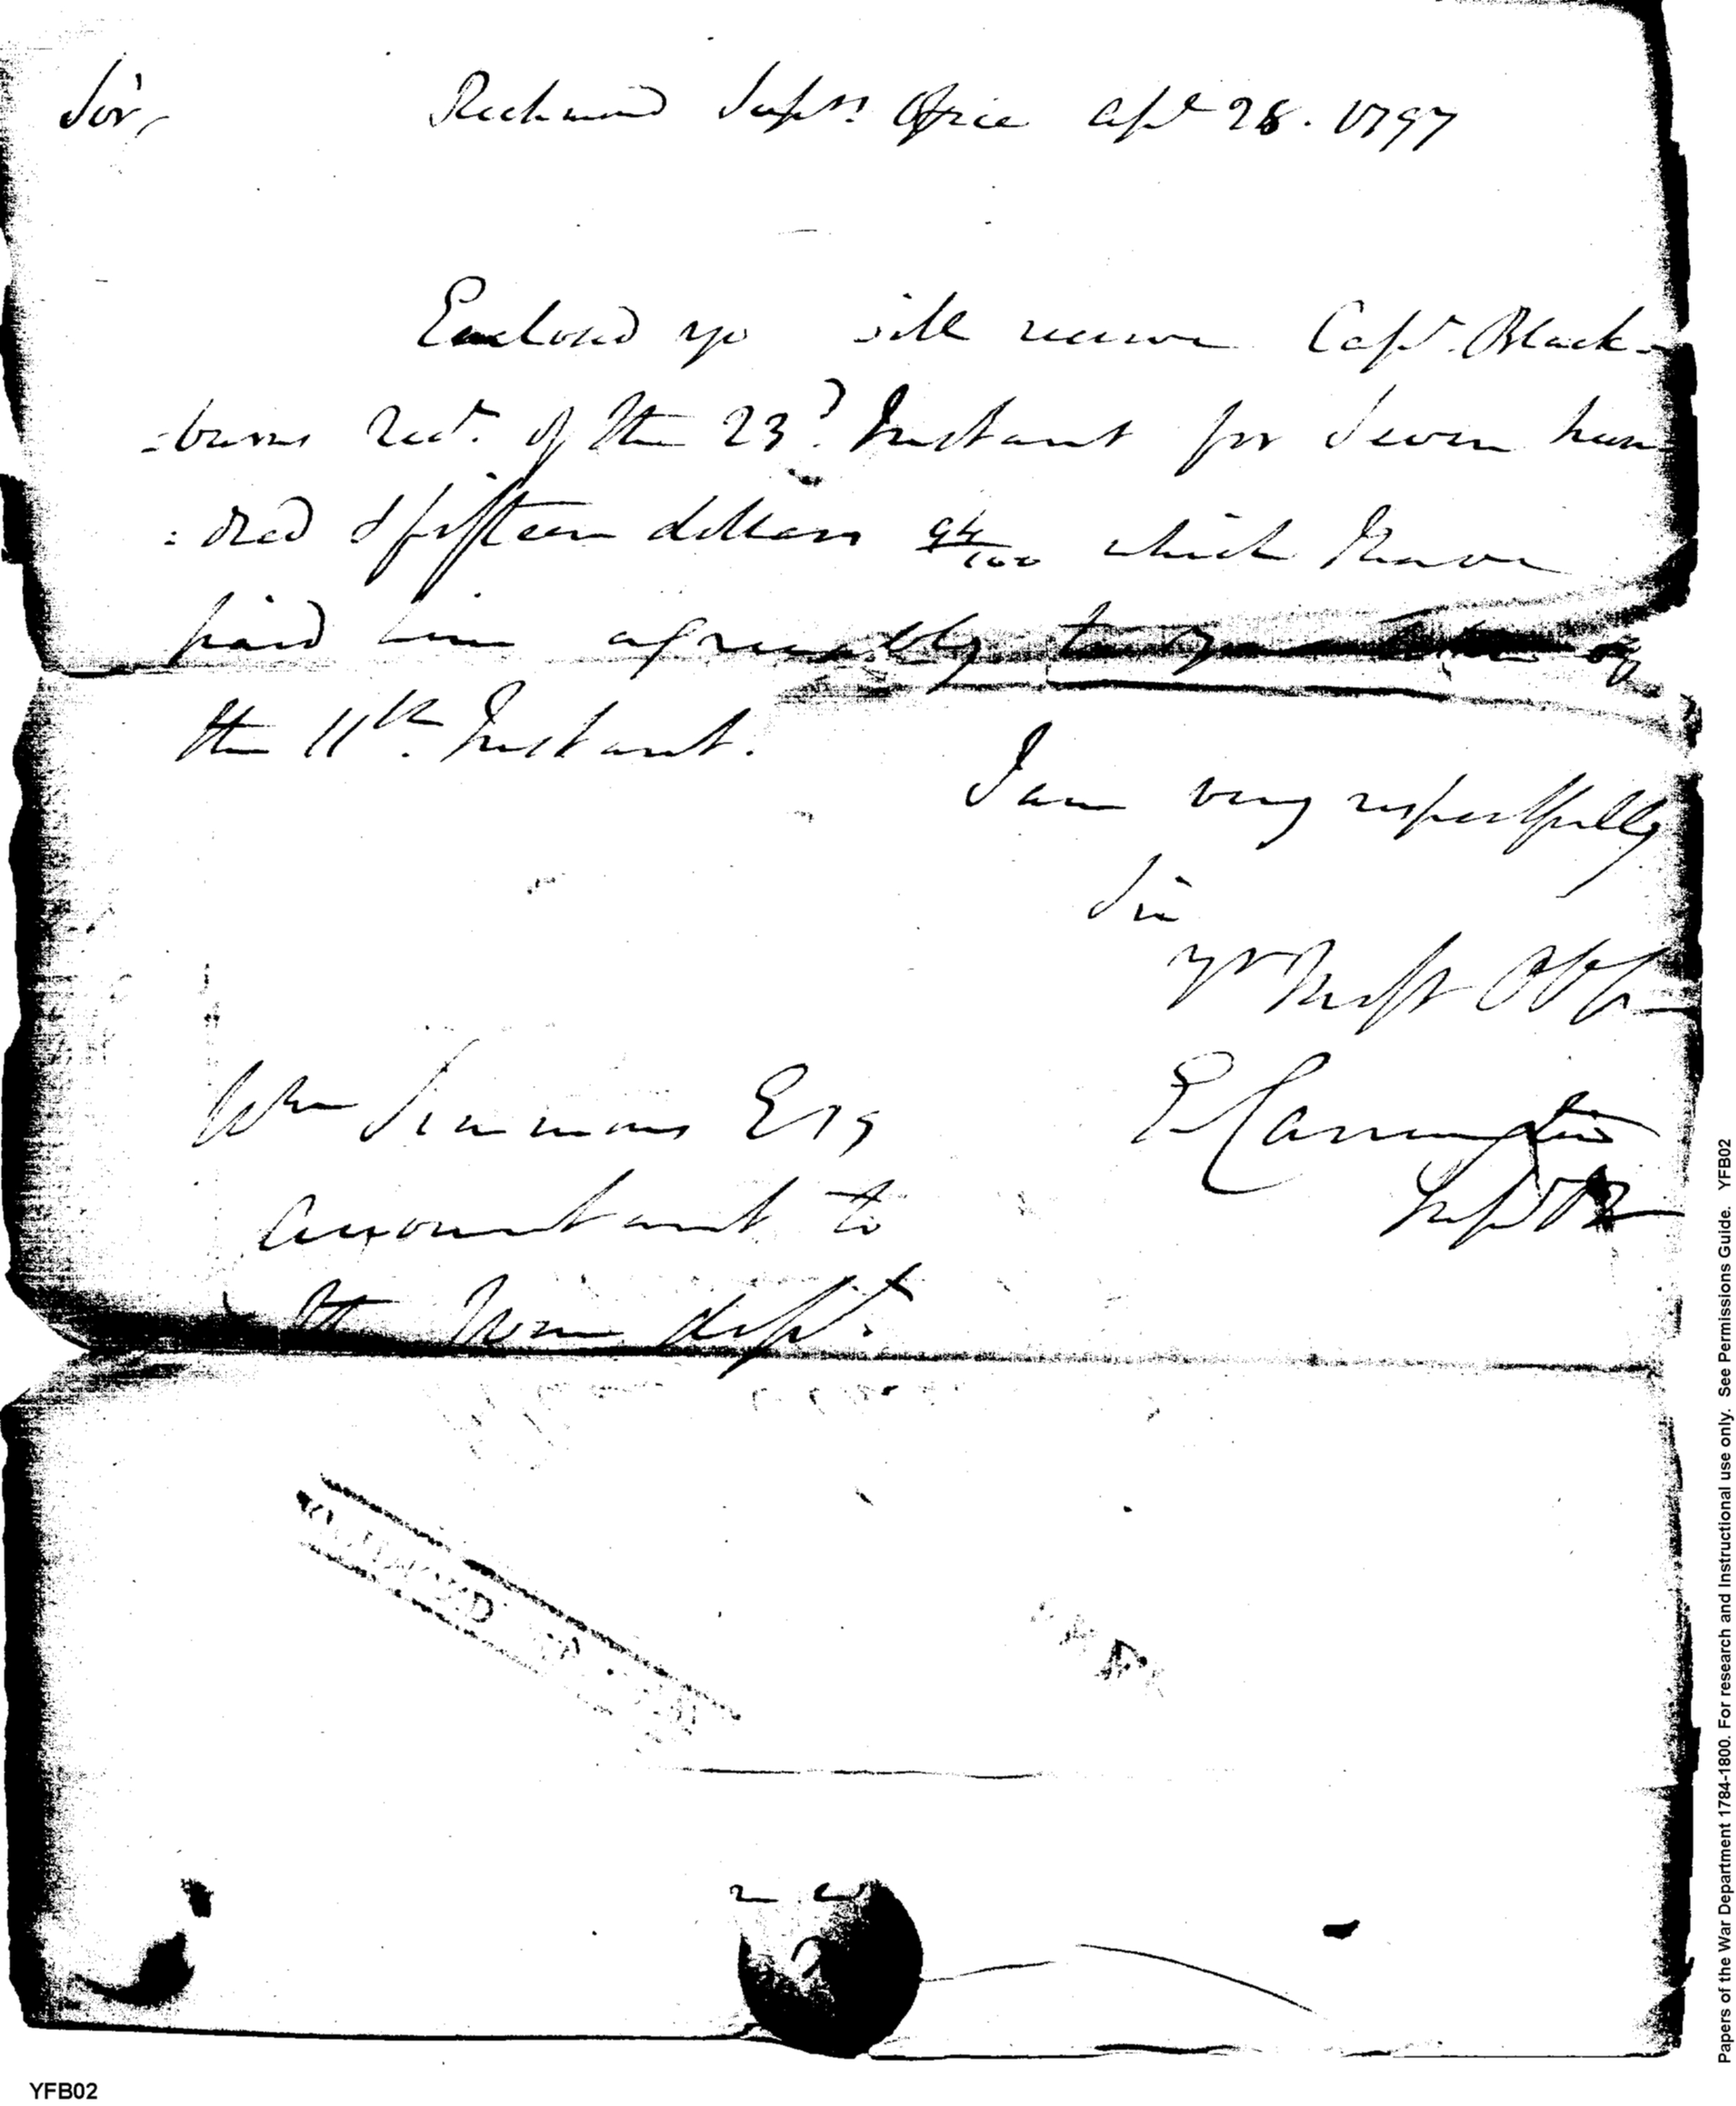 Sir, Richmond Suprs. Office Apl 28. 1797
Enclosed yo will receive Capt. Black-
=burns Rect. of the 23d. Instant for Seven hun
=dred & fifteen dollars 94/100 which I have
paid him agreeably to your letter of
the 11th. Instant.
I am very respectfully
Sir
yr Most Obt
Wm Simmons Esq
E Carrington
accountant to
Supr
the War dept.
Papers of the War Department 1784-1800. For research and Instructional use only. See Permissions Guide. YFB02
YFB02